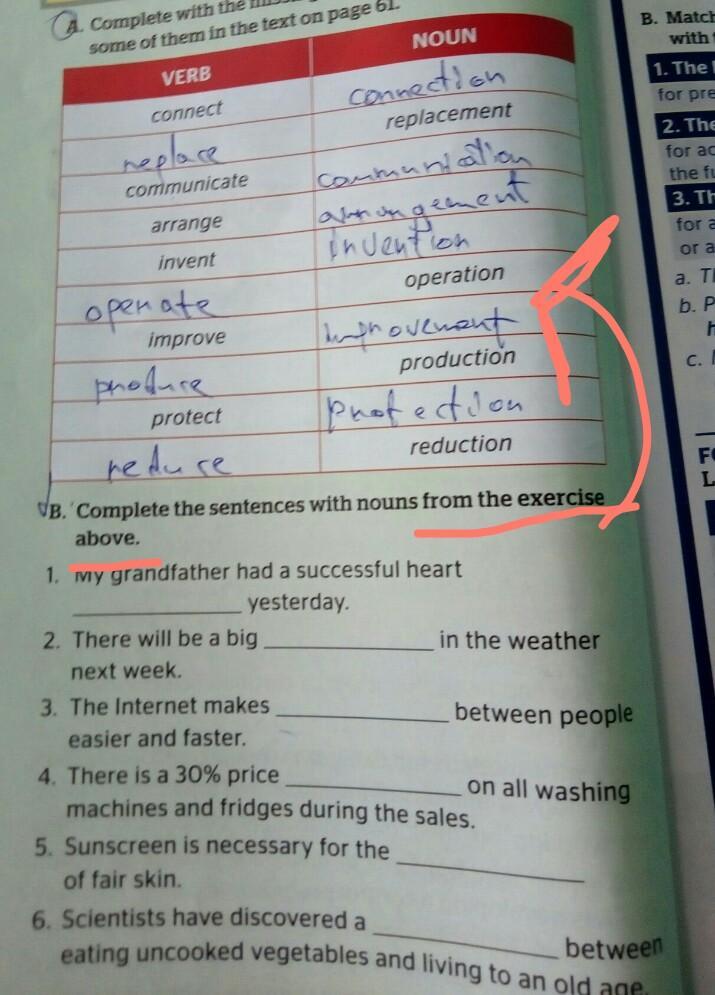 A. Complete with the
some of them in the text on page 61.
VERB NOUN
connect connection
replace replacement
communicate communication
arrange arrangement
invent invention
operate operation
improve improvement
produce production
protect protection
reduce reduction
B. Complete the sentences with nouns from the exercise
above.
1. My grandfather had a successful heart
____________ yesterday.
2. There will be a big ____________ in the weather
next week.
3. The Internet makes ____________ between people
easier and faster.
4. There is a 30% price ____________ on all washing
machines and fridges during the sales.
5. Sunscreen is necessary for the ____________
of fair skin.
6. Scientists have discovered a ____________ between
eating uncooked vegetables and living to an old age.
B. Match
with
1. The
for pre
2. The
for ac
the fu
3. Th
for a
or a
a. Tl
b. P
h
c.
F
L